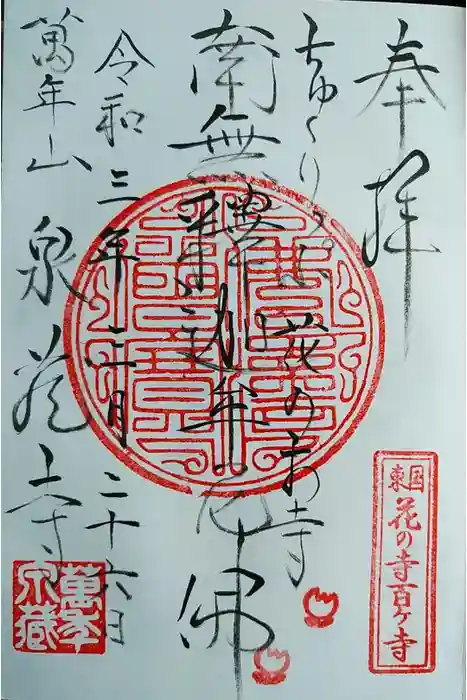 奉拝
ちゅうりっぷ花のお寺
南無釋迦牟尼佛
令和三年十二月二十六日
萬年山泉蔵寺
東国
花の寺百ヶ寺